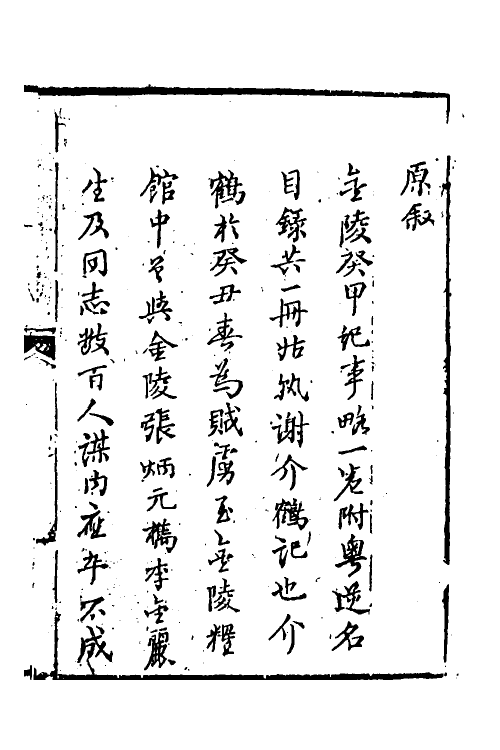 原叙
金陵癸甲紀事略一卷附粤逆名
目錄共一冊姑孰謝介鶴記也介
鶴於癸丑春為賊虜至金陵糧
館中曾與金陵張炳元檇李金麗
生及同志数百人謀内應卒不成